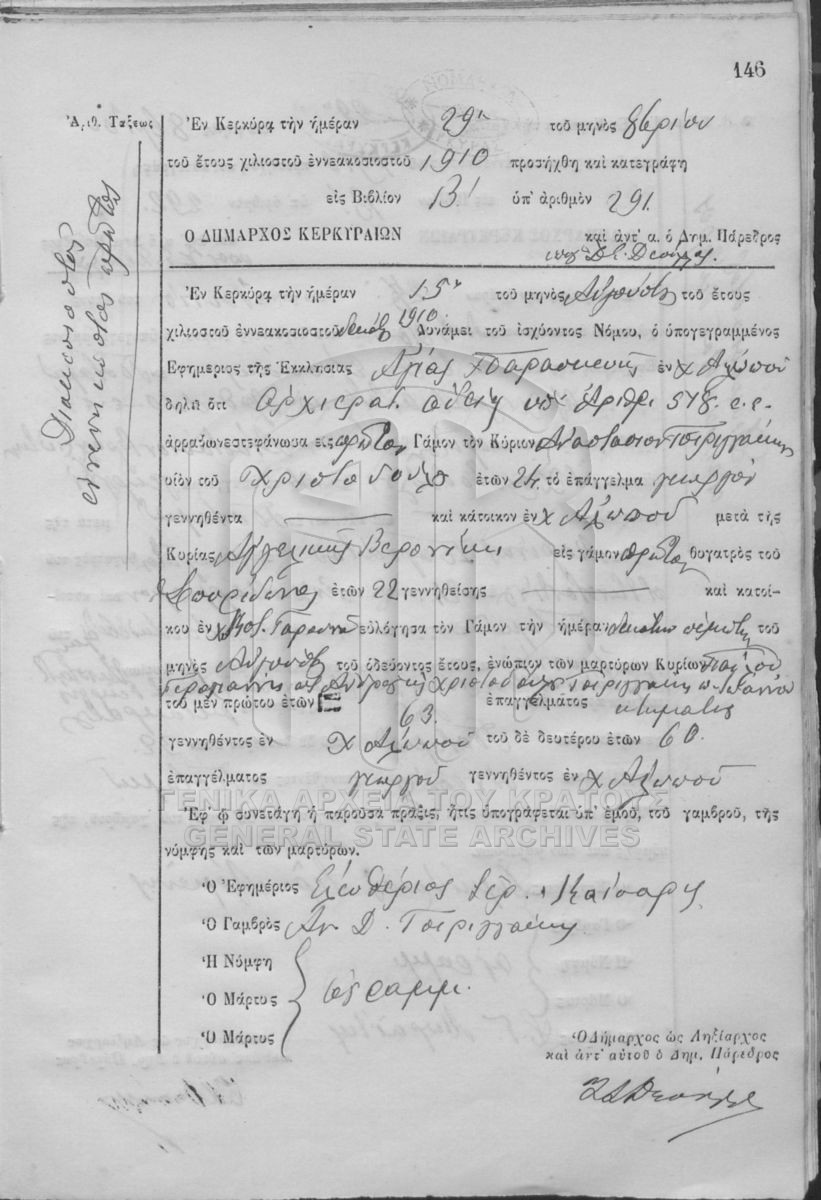 146
Ἀριθ. Τάξεως
Διακοσιοστὸς
ἐννενηκοστὸς πρῶτος
Ἐν Κερκύρᾳ τὴν ἡμέραν 29ην τοῦ μηνὸς 8βρίου
τοῦ ἔτους χιλιοστοῦ ἐννεακοσιοστοῦ 1910 προσήχθη καὶ κατεγράφη
εἰς Βιβλίον Β' ὑπ' ἀριθμὸν 291.
Ο ΔΗΜΑΡΧΟΣ ΚΕΡΚΥΡΑΙΩΝ καὶ ἀντ' α. ὁ Δημ. Πάρεδρος
Ἐν Κερκύρᾳ τὴν ἡμέραν 15ην τοῦ μηνὸς Αὐγούστου τοῦ ἔτους
χιλιοστοῦ ἐννεακοσιοστοῦ δεκάτου 1910 Δυνάμει τοῦ ἰσχύοντος Νόμου, ὁ ὑπογεγραμμένος
Ἐφημέριος τῆς Ἐκκλησίας Ἁγίας Παρασκευῆς ἐν χ. Ἀλεποῦ
δηλῶ ὅτι Ἀρχιερατ. ἀδείᾳ ὑπ' ἀριθμ. 518 ἐ. ἔ.
ἀρραβωνεστεφάνωσα εἰς πρῶτον Γάμον τὸν Κύριον Ἀναστάσιον Τσιριγγάκην
υἱὸν τοῦ Χριστοδούλου ἐτῶν 24 τὸ ἐπάγγελμα γεωργὸν
γεννηθέντα καὶ κάτοικον ἐν χ. Ἀλεποῦ μετὰ τῆς
Κυρίας Ἀγγελικῆς Βερονίκη εἰς γάμον πρῶτον θυγατρὸς τοῦ
Σπυρίδωνος ἐτῶν 22 γεννηθείσης καὶ κατοί-
κου ἐν εὐλόγησα τὸν Γάμον τὴν ἡμέραν δεκάτην πέμπτην τοῦ
μηνὸς Αὐγούστου τοῦ ὁδεύοντος ἔτους, ἐνώπιον τῶν μαρτύρων Κυρίων Παύλου
Χριστοδούλου Τσιριγγάκη Ἰωάννου
τοῦ μὲν πρώτου ἐτῶν 63. ἐπαγγέλματος κτηματίας
γεννηθέντος ἐν χ. Ἀλεποῦ τοῦ δὲ δευτέρου ἐτῶν 60.
ἐπαγγέλματος γεωργοῦ γεννηθέντος ἐν χ. Ἀλεποῦ
ΓΕΝΙΚΑ ΑΡΧΕΙΑ ΤΟΥ ΚΡΑΤΟΥΣ
Ἐφ' ᾧ συνετάγη ἡ παροῦσα πρᾶξις, ἥτις ὑπογράφεται ὑπ' ἐμοῦ, τοῦ γαμβροῦ, τῆς
GENERAL STATE ARCHIVES
νύμφης καὶ τῶν μαρτύρων.
Ὁ Ἐφημέριος Ἐλευθέριος ἱερ. Καίσαρης
Ὁ Γαμβρὸς Αν. Δ. Τσιριγγάκης
Ἡ Νύμφη
Ὁ Μάρτυς ἀγράμμ.
Ὁ Μάρτυς
Ὁ Δήμαρχος ὡς Ληξίαρχος
καὶ ἀντ' αὐτοῦ ὁ Δημ. Πάρεδρος